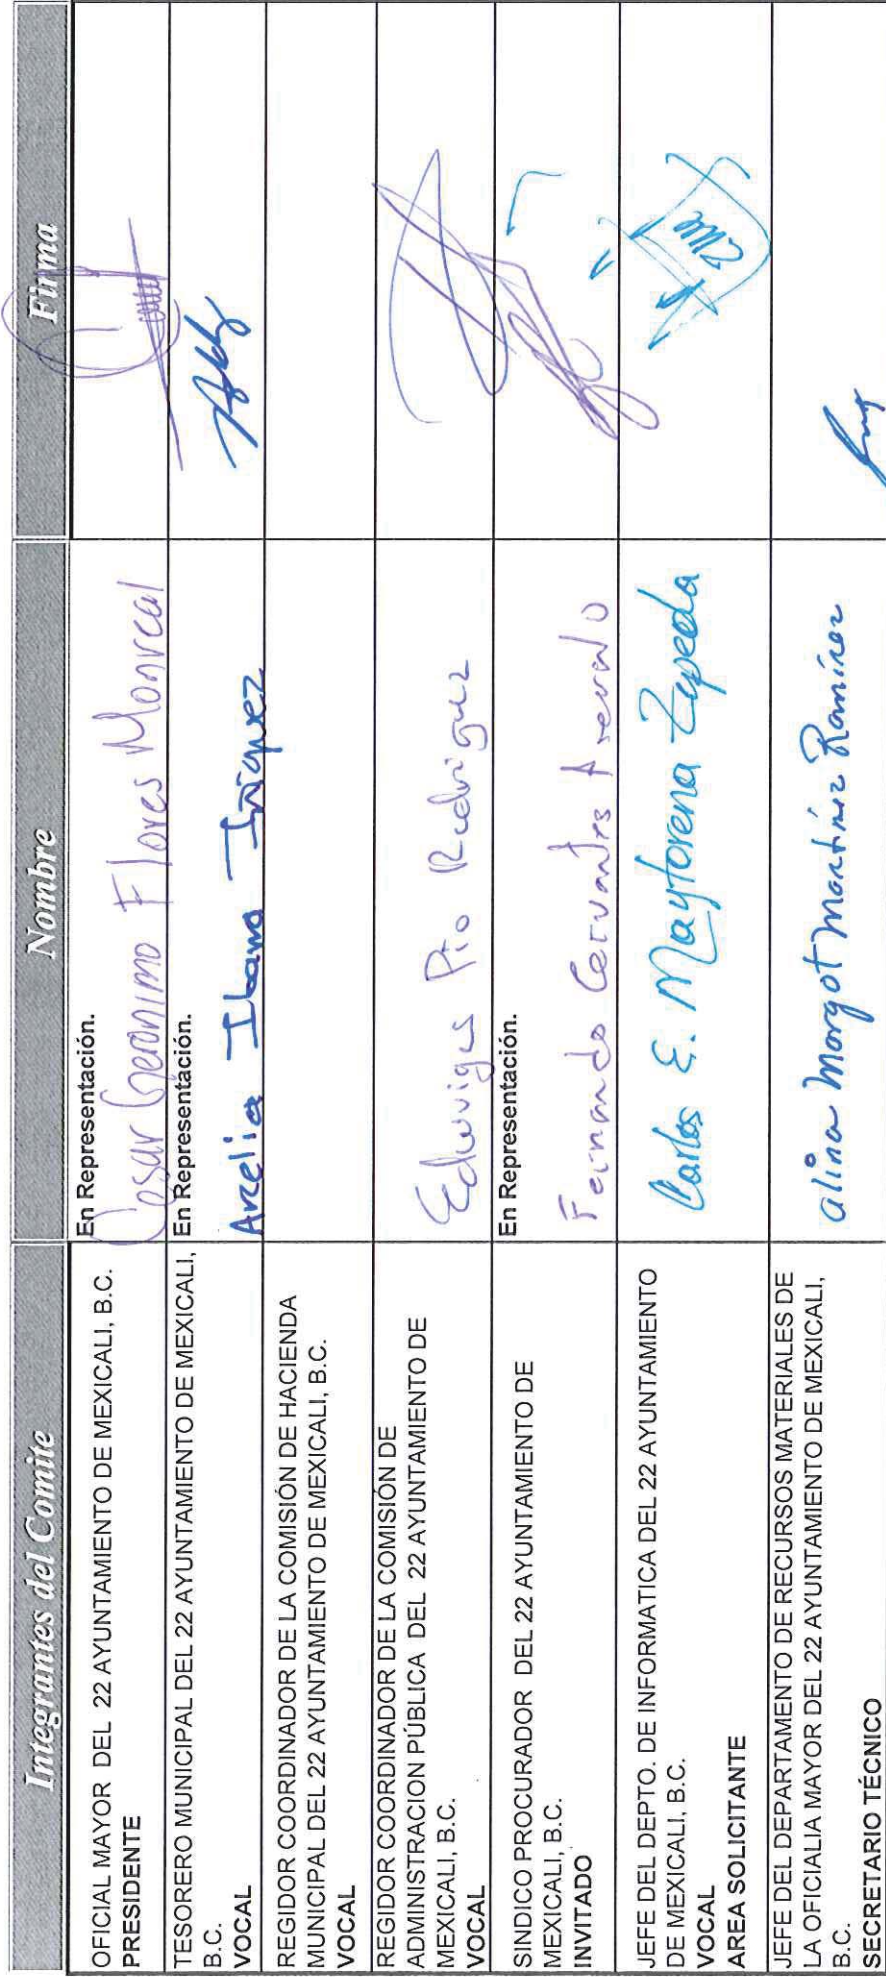 Integrantes del Comite Nombre Firma
OFICIAL MAYOR DEL 22 AYUNTAMIENTO DE MEXICALI, B.C.
PRESIDENTE
En Representación.
Cesar Geronimo Flores Monreal
TESORERO MUNICIPAL DEL 22 AYUNTAMIENTO DE MEXICALI,
B.C.
VOCAL
En Representación.
Arcelia Ibarra Iñiquez
REGIDOR COORDINADOR DE LA COMISIÓN DE HACIENDA
MUNICIPAL DEL 22 AYUNTAMIENTO DE MEXICALI, B.C.
VOCAL
REGIDOR COORDINADOR DE LA COMISIÓN DE
ADMINISTRACION PÚBLICA DEL 22 AYUNTAMIENTO DE
MEXICALI, B.C.
VOCAL
Edwviges Pio Rodriguez
SINDICO PROCURADOR DEL 22 AYUNTAMIENTO DE
MEXICALI, B.C.
INVITADO
En Representación.
Fernando Cervantes Arevalo
JEFE DEL DEPTO. DE INFORMATICA DEL 22 AYUNTAMIENTO
DE MEXICALI, B.C.
VOCAL
AREA SOLICITANTE
Carlos E. Maytorena Zepeda
JEFE DEL DEPARTAMENTO DE RECURSOS MATERIALES DE
LA OFICIALIA MAYOR DEL 22 AYUNTAMIENTO DE MEXICALI,
B.C.
SECRETARIO TÉCNICO
Alina Margot Martínez Ramírez